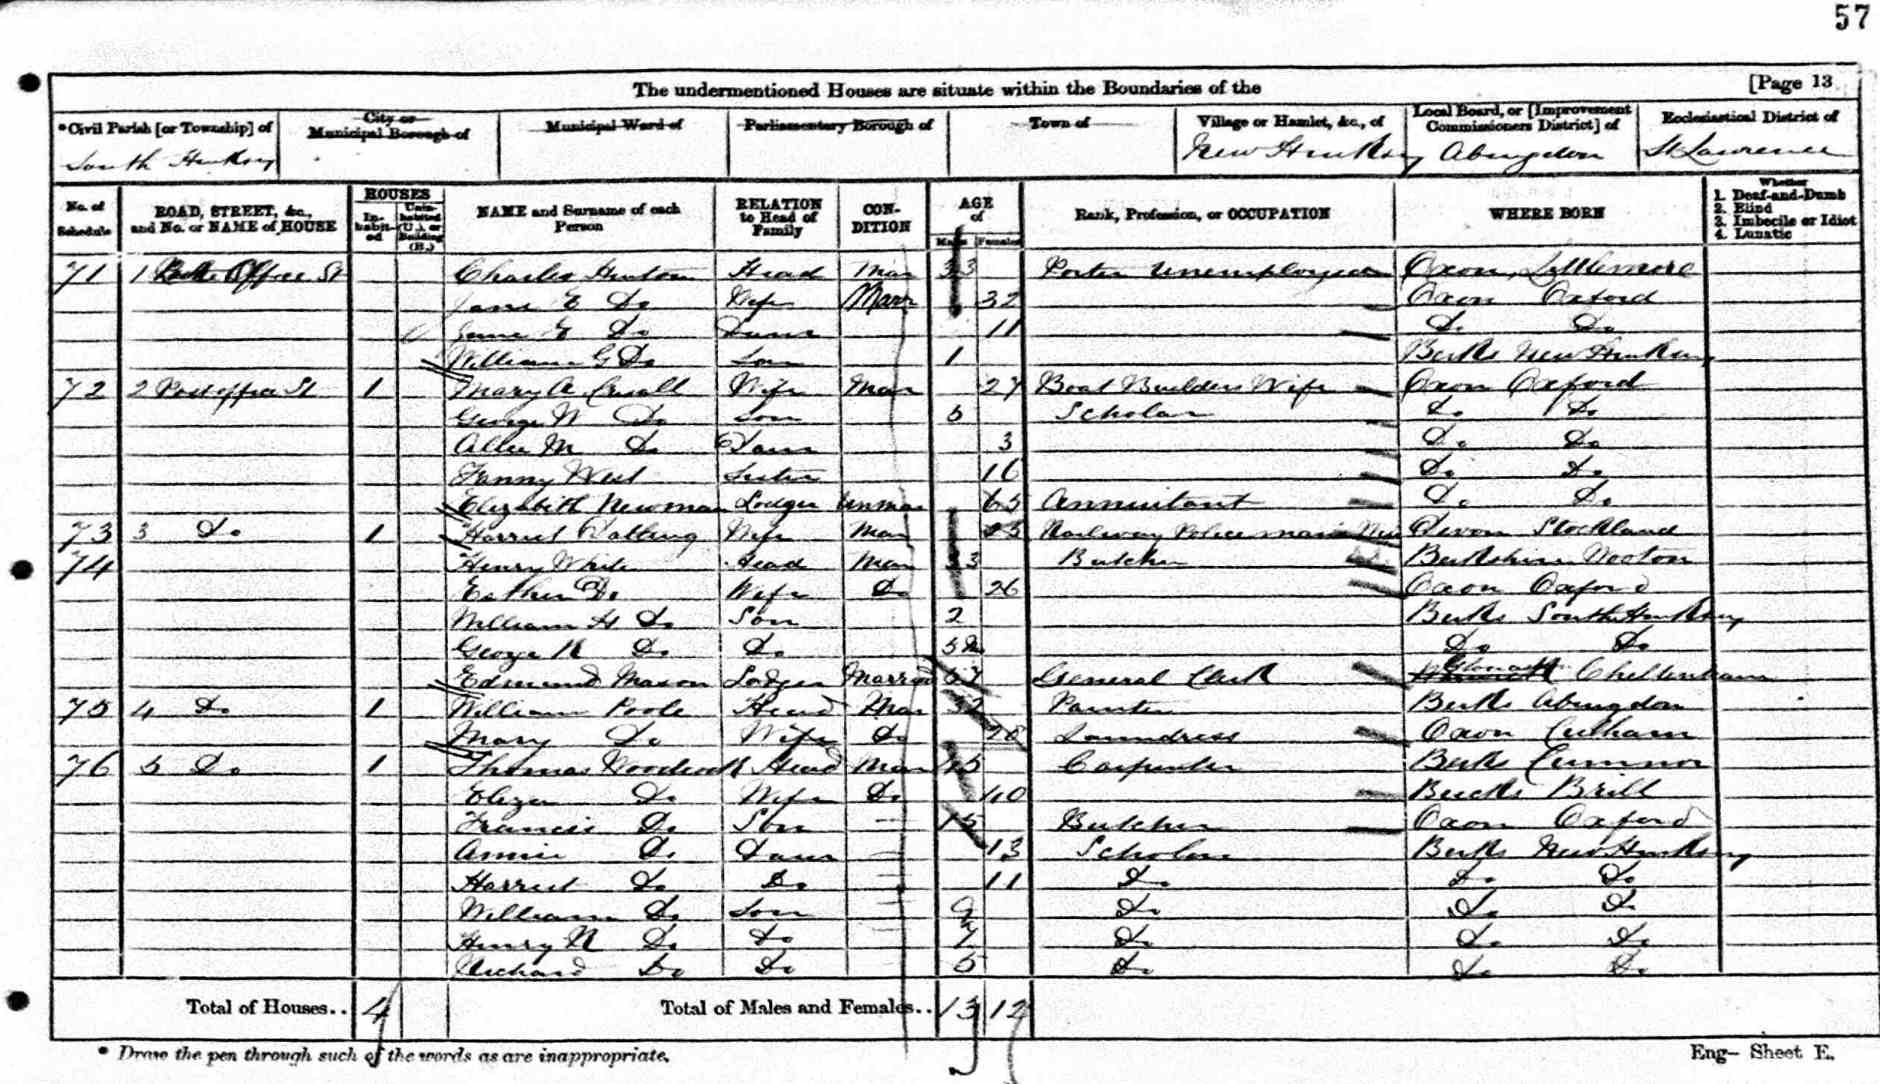 57
The undermentioned Houses are situate within the Boundaries of the [Page 13
*Civil Parish [or Township] of City or Municipal Borough of Municipal Ward of Parliamentary Borough of Town of Village or Hamlet, &c., of Local Board, or [Improvement Commissioners District] of Ecclesiastical District of
South Hinksey New Hinksey Abingdon St Lawrence
No. of Schedule ROAD, STREET, &c., and No. or NAME of HOUSE HOUSES Inhabited Uninhabited (U.), or Building (B.) NAME and Surname of each Person RELATION to Head of Family CONDITION AGE of Males Females Rank, Profession, or OCCUPATION WHERE BORN Whether 1. Deaf-and-Dumb 2. Blind 3. Imbecile or Idiot 4. Lunatic
71 1 Post Office St Charles Head Mar 33 Porter unemployed Oxon, Littlemore
Jane E Do Wife Marr 32 Oxon Oxford
Jane E Do Daur 11 Do Do
William G Do Son 1 Berks New Hinksey
72 2 Post office St 1 Mary A Wife Mar 27 Boat Builders Wife Oxon Oxford
George W Do Son 5 Scholar Do Do
Alice M Do Daur 3 Do Do
Fanny West Sister 16 Do Do
Elizabeth Newman Lodger Unmar 65 Annuitant Do Do
73 3 Do 1 Harriet Wife Mar Railway Policemans Devon Stockland
74 Henry White Head Mar 33 Butcher Berkshire Wooton
Esther Do Wife Do 26 Oxon Oxford
William H Do Son 2 Berks South Hinksey
George Do Do Do Do
Edmund Mason Lodger Married 57 General Clerk Cheltenham
75 4 Do 1 William Poole Head Mar Painter Berks Abingdon
Mary Do Wife Do Laundress Oxon Culham
76 5 Do 1 Thomas Woodcock Head Mar 45 Carpenter Berks Cumnor
Eliza Do Wife Do 40 Bucks Brill
Francis Do Son 15 Butcher Oxon Oxford
Annie Do Daur 13 Scholar Berks New Hinksey
Harriet Do Do 11 Do Do Do
William Do Son 9 Do Do Do
Henry Do Do 7 Do Do Do
Richard Do Do 5 Do Do Do
Total of Houses.. 4 Total of Males and Females.. 13 12
* Draw the pen through such of the words as are inappropriate. Eng- Sheet E.